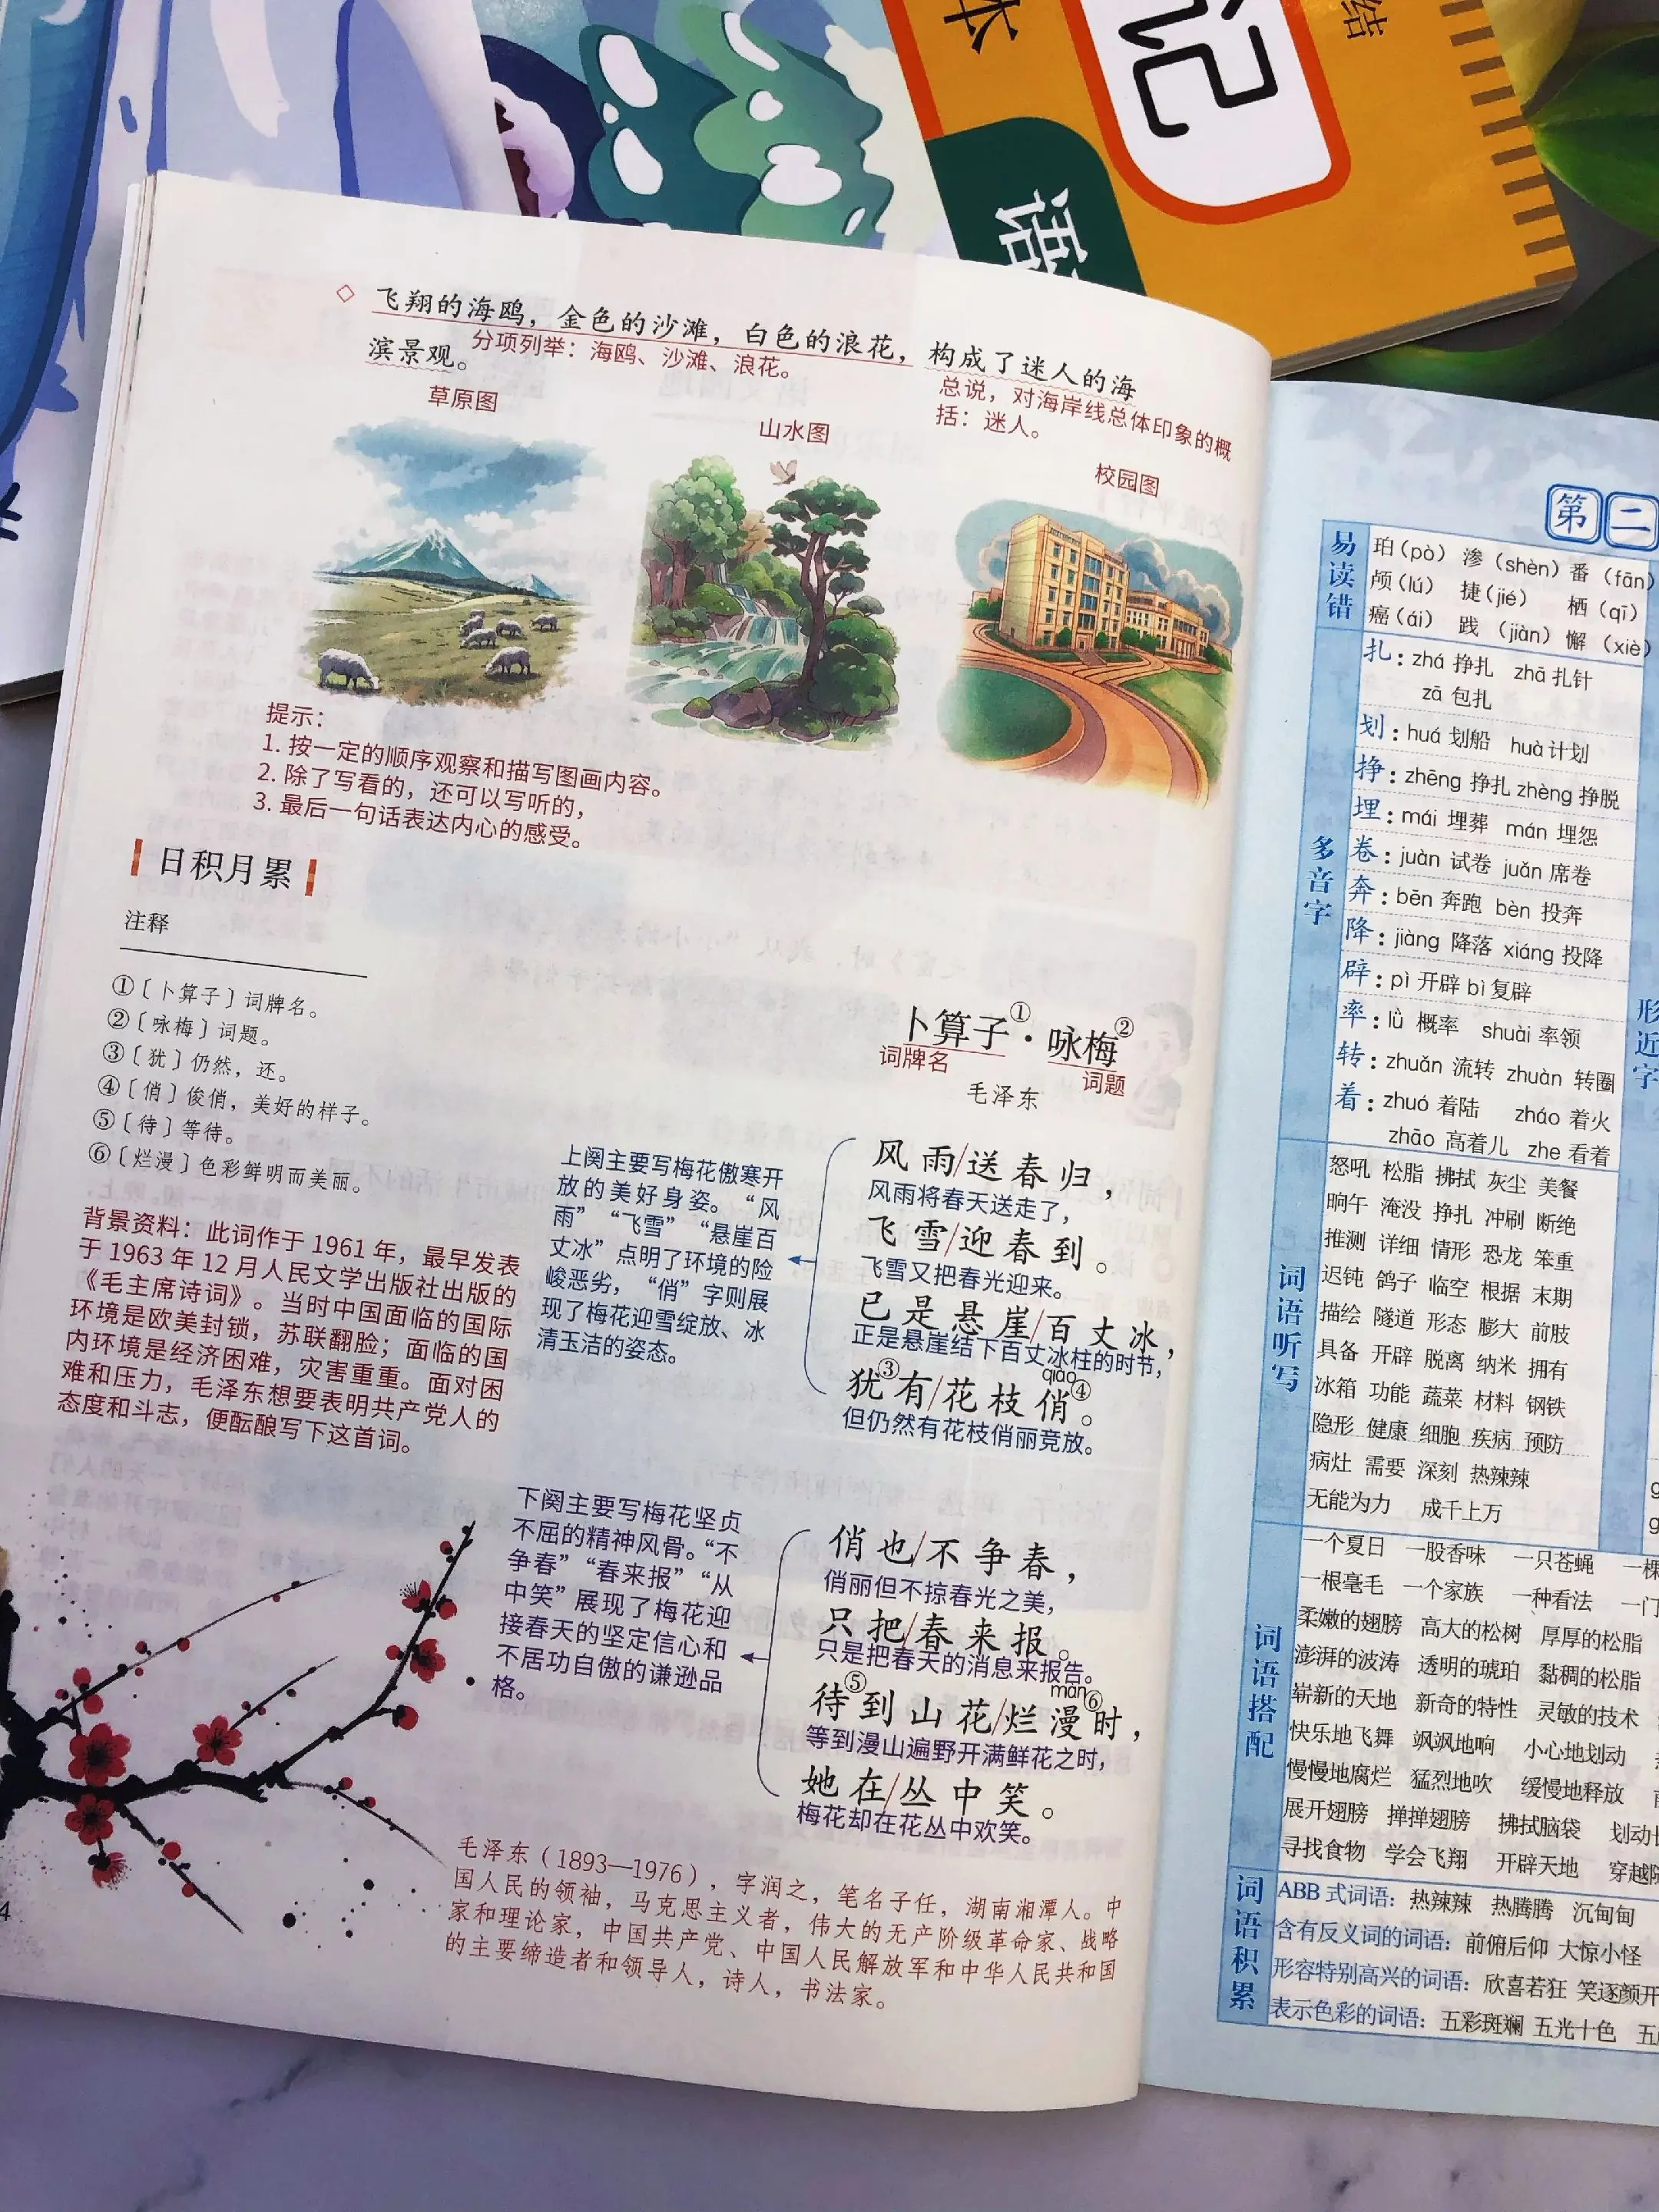 本
记
结
语
◇ 飞翔的海鸥，金色的沙滩，白色的浪花，构成了迷人的海
滨景观。
分项列举：海鸥、沙滩、浪花。
总说，对海岸线总体印象的概
括：迷人。
草原图
山水图
校园图
提示：
1. 按一定的顺序观察和描写图画内容。
2. 除了写看的，还可以写听的，
3. 最后一句话表达内心的感受。
日积月累
注释
①〔卜算子〕词牌名。
②〔咏梅〕词题。
③〔犹〕仍然，还。
④〔俏〕俊俏，美好的样子。
⑤〔待〕等待。
⑥〔烂漫〕色彩鲜明而美丽。
背景资料：此词作于 1961 年，最早发表
于 1963 年 12 月人民文学出版社出版的
《毛主席诗词》。当时中国面临的国际
环境是欧美封锁，苏联翻脸；面临的国
内环境是经济困难，灾害重重。面对困
难和压力，毛泽东想要表明共产党人的
态度和斗志，便酝酿写下这首词。
卜算子①·咏梅②
词牌名
词题
毛泽东
上阕主要写梅花傲寒开
放的美好身姿。“风
雨”“飞雪”“悬崖百
丈冰”点明了环境的险
峻恶劣，“俏”字则展
现了梅花迎雪绽放、冰
清玉洁的姿态。
风雨/送春归，
风雨将春天送走了，
飞雪/迎春到。
飞雪又把春光迎来。
已是悬崖/百丈冰，
正是悬崖结下百丈冰柱的时节，
qiào
犹③有/花枝俏④。
但仍然有花枝俏丽竞放。
下阕主要写梅花坚贞
不屈的精神风骨。“不
争春”“春来报”“从
中笑”展现了梅花迎
接春天的坚定信心和
不居功自傲的谦逊品
格。
俏也/不争春，
俏丽但不掠春光之美，
只把/春来报。
只是把春天的消息来报告。
màn
待⑤到山花/烂漫⑥时，
等到漫山遍野开满鲜花之时，
她在/丛中笑。
梅花却在花丛中欢笑。
毛泽东（1893—1976），字润之，笔名子任，湖南湘潭人。中
国人民的领袖，马克思主义者，伟大的无产阶级革命家、战略
家和理论家，中国共产党、中国人民解放军和中华人民共和国
的主要缔造者和领导人，诗人，书法家。
4
第二
易读错
珀（pò） 渗（shèn） 番（fān）
颅（lú） 捷（jié） 栖（qī）
癌（ái） 践（jiàn） 懈（xiè）
多音字
扎：zhá 挣扎 zhā 扎针
zā 包扎
划：huá 划船 huà 计划
挣：zhēng 挣扎 zhèng 挣脱
埋：mái 埋葬 mán 埋怨
卷：juàn 试卷 juǎn 席卷
奔：bēn 奔跑 bèn 投奔
降：jiàng 降落 xiáng 投降
辟：pì 开辟 bì 复辟
率：lǜ 概率 shuài 率领
转：zhuǎn 流转 zhuàn 转圈
着：zhuó 着陆 zháo 着火
zhāo 高着儿 zhe 看着
形近字
词语听写
怒吼 松脂 拂拭 灰尘 美餐
晌午 淹没 挣扎 冲刷 断绝
推测 详细 情形 恐龙 笨重
迟钝 鸽子 临空 根据 末期
描绘 隧道 形态 膨大 前肢
具备 开辟 脱离 纳米 拥有
冰箱 功能 蔬菜 材料 钢铁
隐形 健康 细胞 疾病 预防
病灶 需要 深刻 热辣辣
无能为力 成千上万
词语搭配
一个夏日 一股香味 一只苍蝇 一棵
一根毫毛 一个家族 一种看法 一门
柔嫩的翅膀 高大的松树 厚厚的松脂
澎湃的波涛 透明的琥珀 黏稠的松脂
崭新的天地 新奇的特性 灵敏的技术
快乐地飞舞 飒飒地响 小心地划动
慢慢地腐烂 猛烈地吹 缓慢地释放
展开翅膀 掸掸翅膀 拂拭脑袋 划动
寻找食物 学会飞翔 开辟天地 穿越
词语积累
ABB 式词语：热辣辣 热腾腾 沉甸甸
含有反义词的词语：前俯后仰 大惊小怪
形容特别高兴的词语：欣喜若狂 笑逐颜开
表示色彩的词语：五彩斑斓 五光十色 五